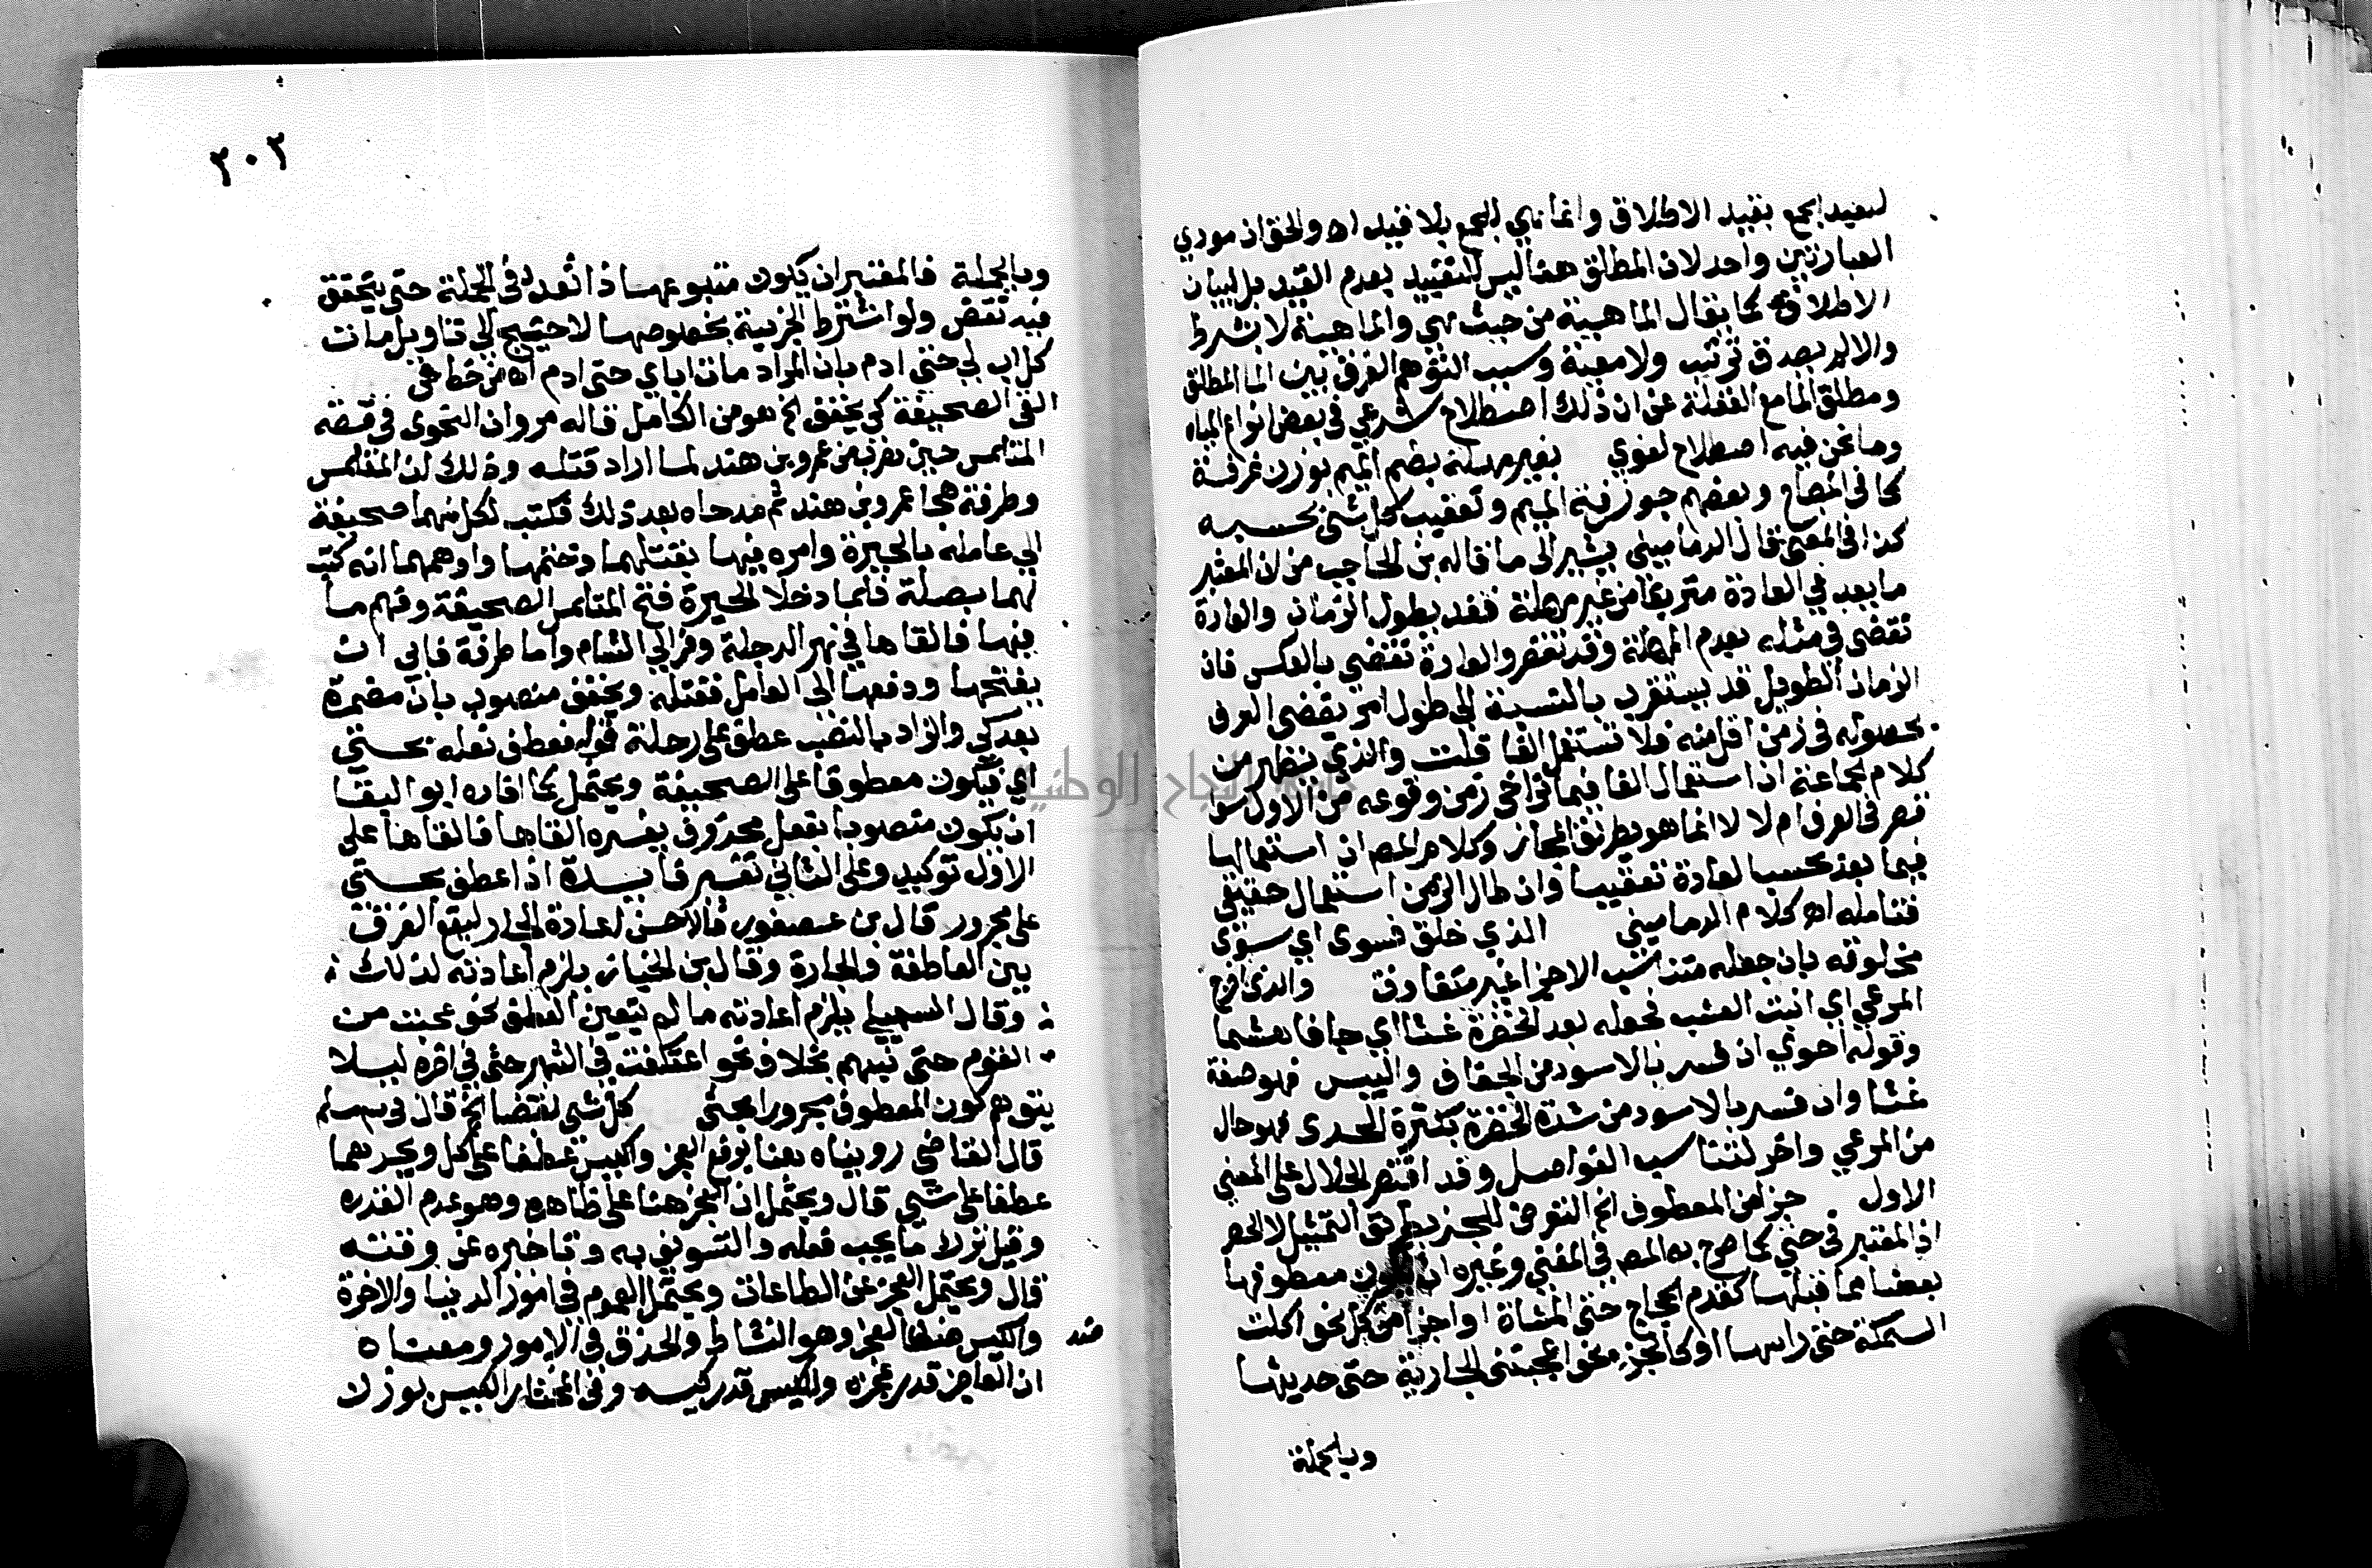 لتقييد الجمع بقيد الاطلاق وانما هي للجمع بلا قيد اه والحق ان مودي
العبارتين واحد لان المطلق هنا ليس للتقييد بعدم القيد بل لبيان
الاطلاق كما يقال الماهية من حيث هي والماهية لا بشرط
والا لم يصدق ترتب ولا معية وسبب التوهم الفرق بين الما المطلق
ومطلق الما مع الغفلة عن ان ذلك اصطلاح شرعي في بعض انواع المياه
وما نحن فيه اصطلاح لغوي بغير مهلة بضم الميم بوزن غرفة
كما في المصباح وبعضهم جوز فتح الميم وتعقيب كل شي بحسبه
كذا في المغني قال الدماميني يشير الى ما قاله بن الحاجب من ان المعتبر
ما يعد في العادة مترتبا من غير مهلة فقد يطول الزمان والعادة
تقضي في مثله بعدم المهلة وقد تقصر والعادة تقضي بالعكس فان
الزمان الطويل قد يستقرب بالنسبة الى طول امر يقضي العرف
بحصوله في زمن اقل منه فلا تستعمل الفا قلت والذي يظهر من
كلام جماعة ان استعمال الفا فيما تراخى زمن وقوعه من الاول سوا
قصر في العرف ام لا لا انما هو بطريق المجاز وكلام المص ان استعمالها
فيما يعد بحسب العادة تعقيبا وان طال الزمن استعمال حقيقي
فتامله اه كلام الدماميني الذي خلق فسوى اي سوى
مخلوقه بان جعله متناسب الاجزا غير متفاوت والذي اخرج
المرعى اي انبت العشب فجعله بعد الخضرة غثا اي جافا هشيما
وقوله احوى ان فسر بالاسود من الجفاف واليبس فهو صفة
غثا وان فسر بالاسود من شدة الخضرة بكثرة الري فهو حال
من المرعى واخر لتناسب الفواصل وقد اقتصر الجلال على المعنى
الاول جزا من المعطوف الخ التعرض للجز بطريق التمثيل لا الحصر
اذ المعتبر في حتى كما صرح به المص في المغني وغيره ان يكون معطوفها
بعضا مما قبلها كقدم الحجاج حتى المشاة او اجزا من كل نحو اكلت
السمكة حتى راسها او كالجزء نحو اعجبتني الجارية حتى حديثها
وبالجملة
٣٠٢
وبالجملة فالمعتبر ان يكون متبوعها ذا تعدد في الجملة حتى يتحقق
فيه تقض ولو اشترط الجزيية بخصوصها لاحتيج الى تاويل مات
كل اب لي حتى ادم بان المراد مات اباي حتى ادم اه من خط
القى الصحيفة كي يخفف الخ هو من الكامل قاله مروان النحوي في قصة
المتلمس حين فر من عمرو بن هند لما اراد قتله وذلك ان المتلمس
وطرفة هجا عمرو بن هند ثم مدحاه بعد ذلك فكتب لكل منهما صحيفة
الى عامله بالحيرة وامره فيها بقتلهما وختمها واوهمهما انه كتب
لهما بصلة فلما دخلا الحيرة فتح المتلمس الصحيفة وفهم ما
فيها فالقاها في نهر الدجلة وفر الى الشام واما طرفة فابى ان
يفتحها ودفعها الى العامل فقتله ويخفف منصوب بان مضمرة
بعد كي والزاد بالنصب عطف على رحله قوله فعطف نعله بحتى
اي فيكون معطوفا على الصحيفة ويحتمل كما افاده ابو البقا
ان يكون منصوبا بفعل محذوف يفسره القاها فالقاها على
الاول توكيد وعلى الثاني تفسير فايدة اذا عطف بحتى
على مجرور قال بن عصفور فالاحسن اعادة الجار ليقع الفرق
بين العاطفة والجارة وقال بن الخباز يلزم اعادته لذلك
وقال السهيلي يلزم اعادته ما لم يتعين العطف نحو عجبت من
القوم حتى بنيهم بخلاف نحو اعتكفت في الشهر حتى في اخره ليلا
يتوهم كون المعطوف مجرورا بحتى كل شي بقضا الخ قال في
قال القاضي رويناه هنا برفع العجز والكيس عطفا على كل وبجرهما
عطفا على شي قال ويحتمل ان العجز هنا على ظاهره وهو عدم القدره
وقيل ترك ما يجب فعله والتسويف به وتاخيره عن وقته
قال ويحتمل العجز عن الطاعات ويحتمل العموم في امور الدنيا والاخرة
والكيس ضد العجز وهو النشاط والحذق في الامور ومعناه
ضد
ان العاجز قدر عجزه والكيس قدر كيسه وفي المختار الكيس بوزن
جامعة النجاح الوطنية